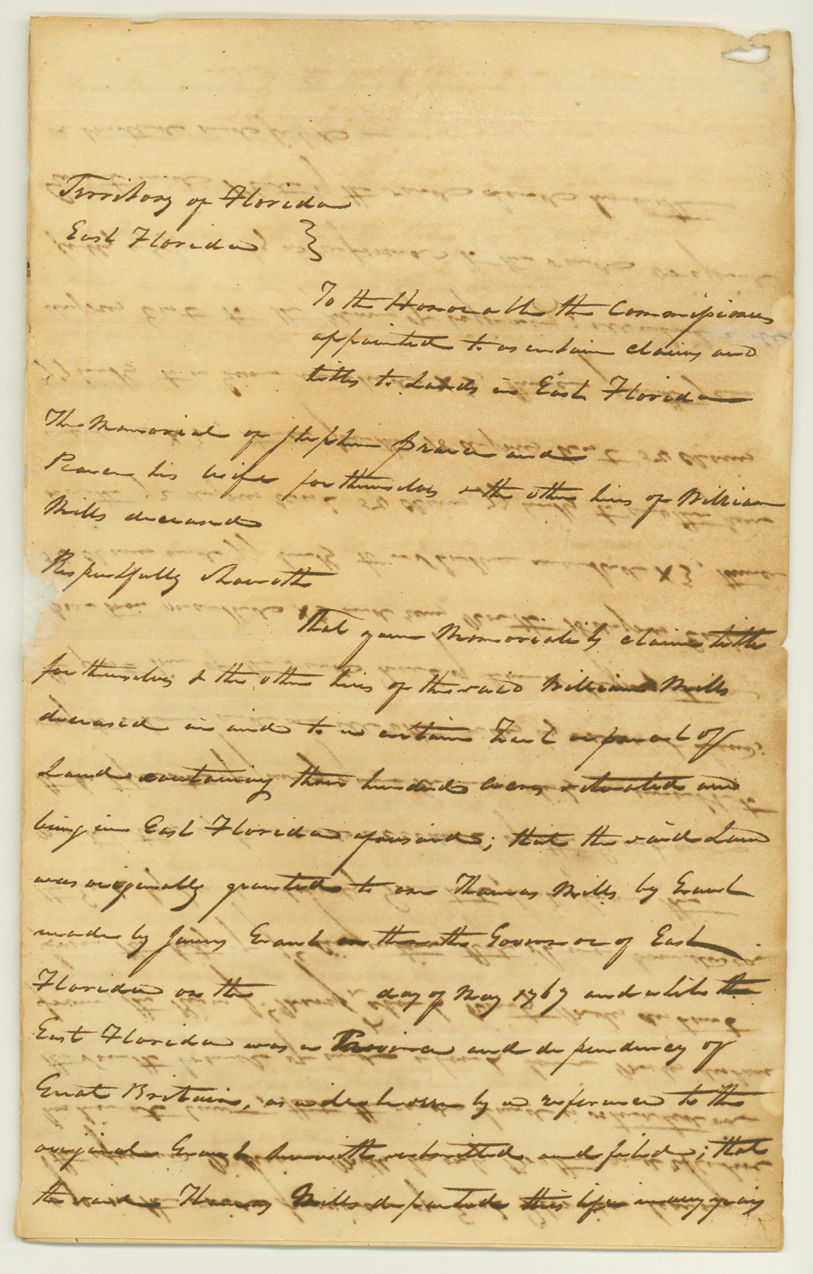 Territory of Florida
East Florida }
To the Honorable the Commissioners
appointed to ascertain claims and
titles to Lands in East Florida
The Memorial of Stephen Pearce and
Pearce his wife for themselves & the other heirs of William
Mills deceased
Respectfully Sheweth
That your Memorialists claim title
for themselves & the other heirs of the said William Mills
deceased in and to a certain Tract or parcel of
Land containing three hundred acres situated and
being in East Florida aforesaid; that the said Land
was originally granted to one Thomas Mills by Grant
made by James Grant then the Governor of East
Florida on the day of May 1767 and while the
East Florida was a Province and dependency of
Great Britain, as will be seen by a reference to the
original Grant herewith submitted and filed; that
the said Thomas Mills departed this life many years